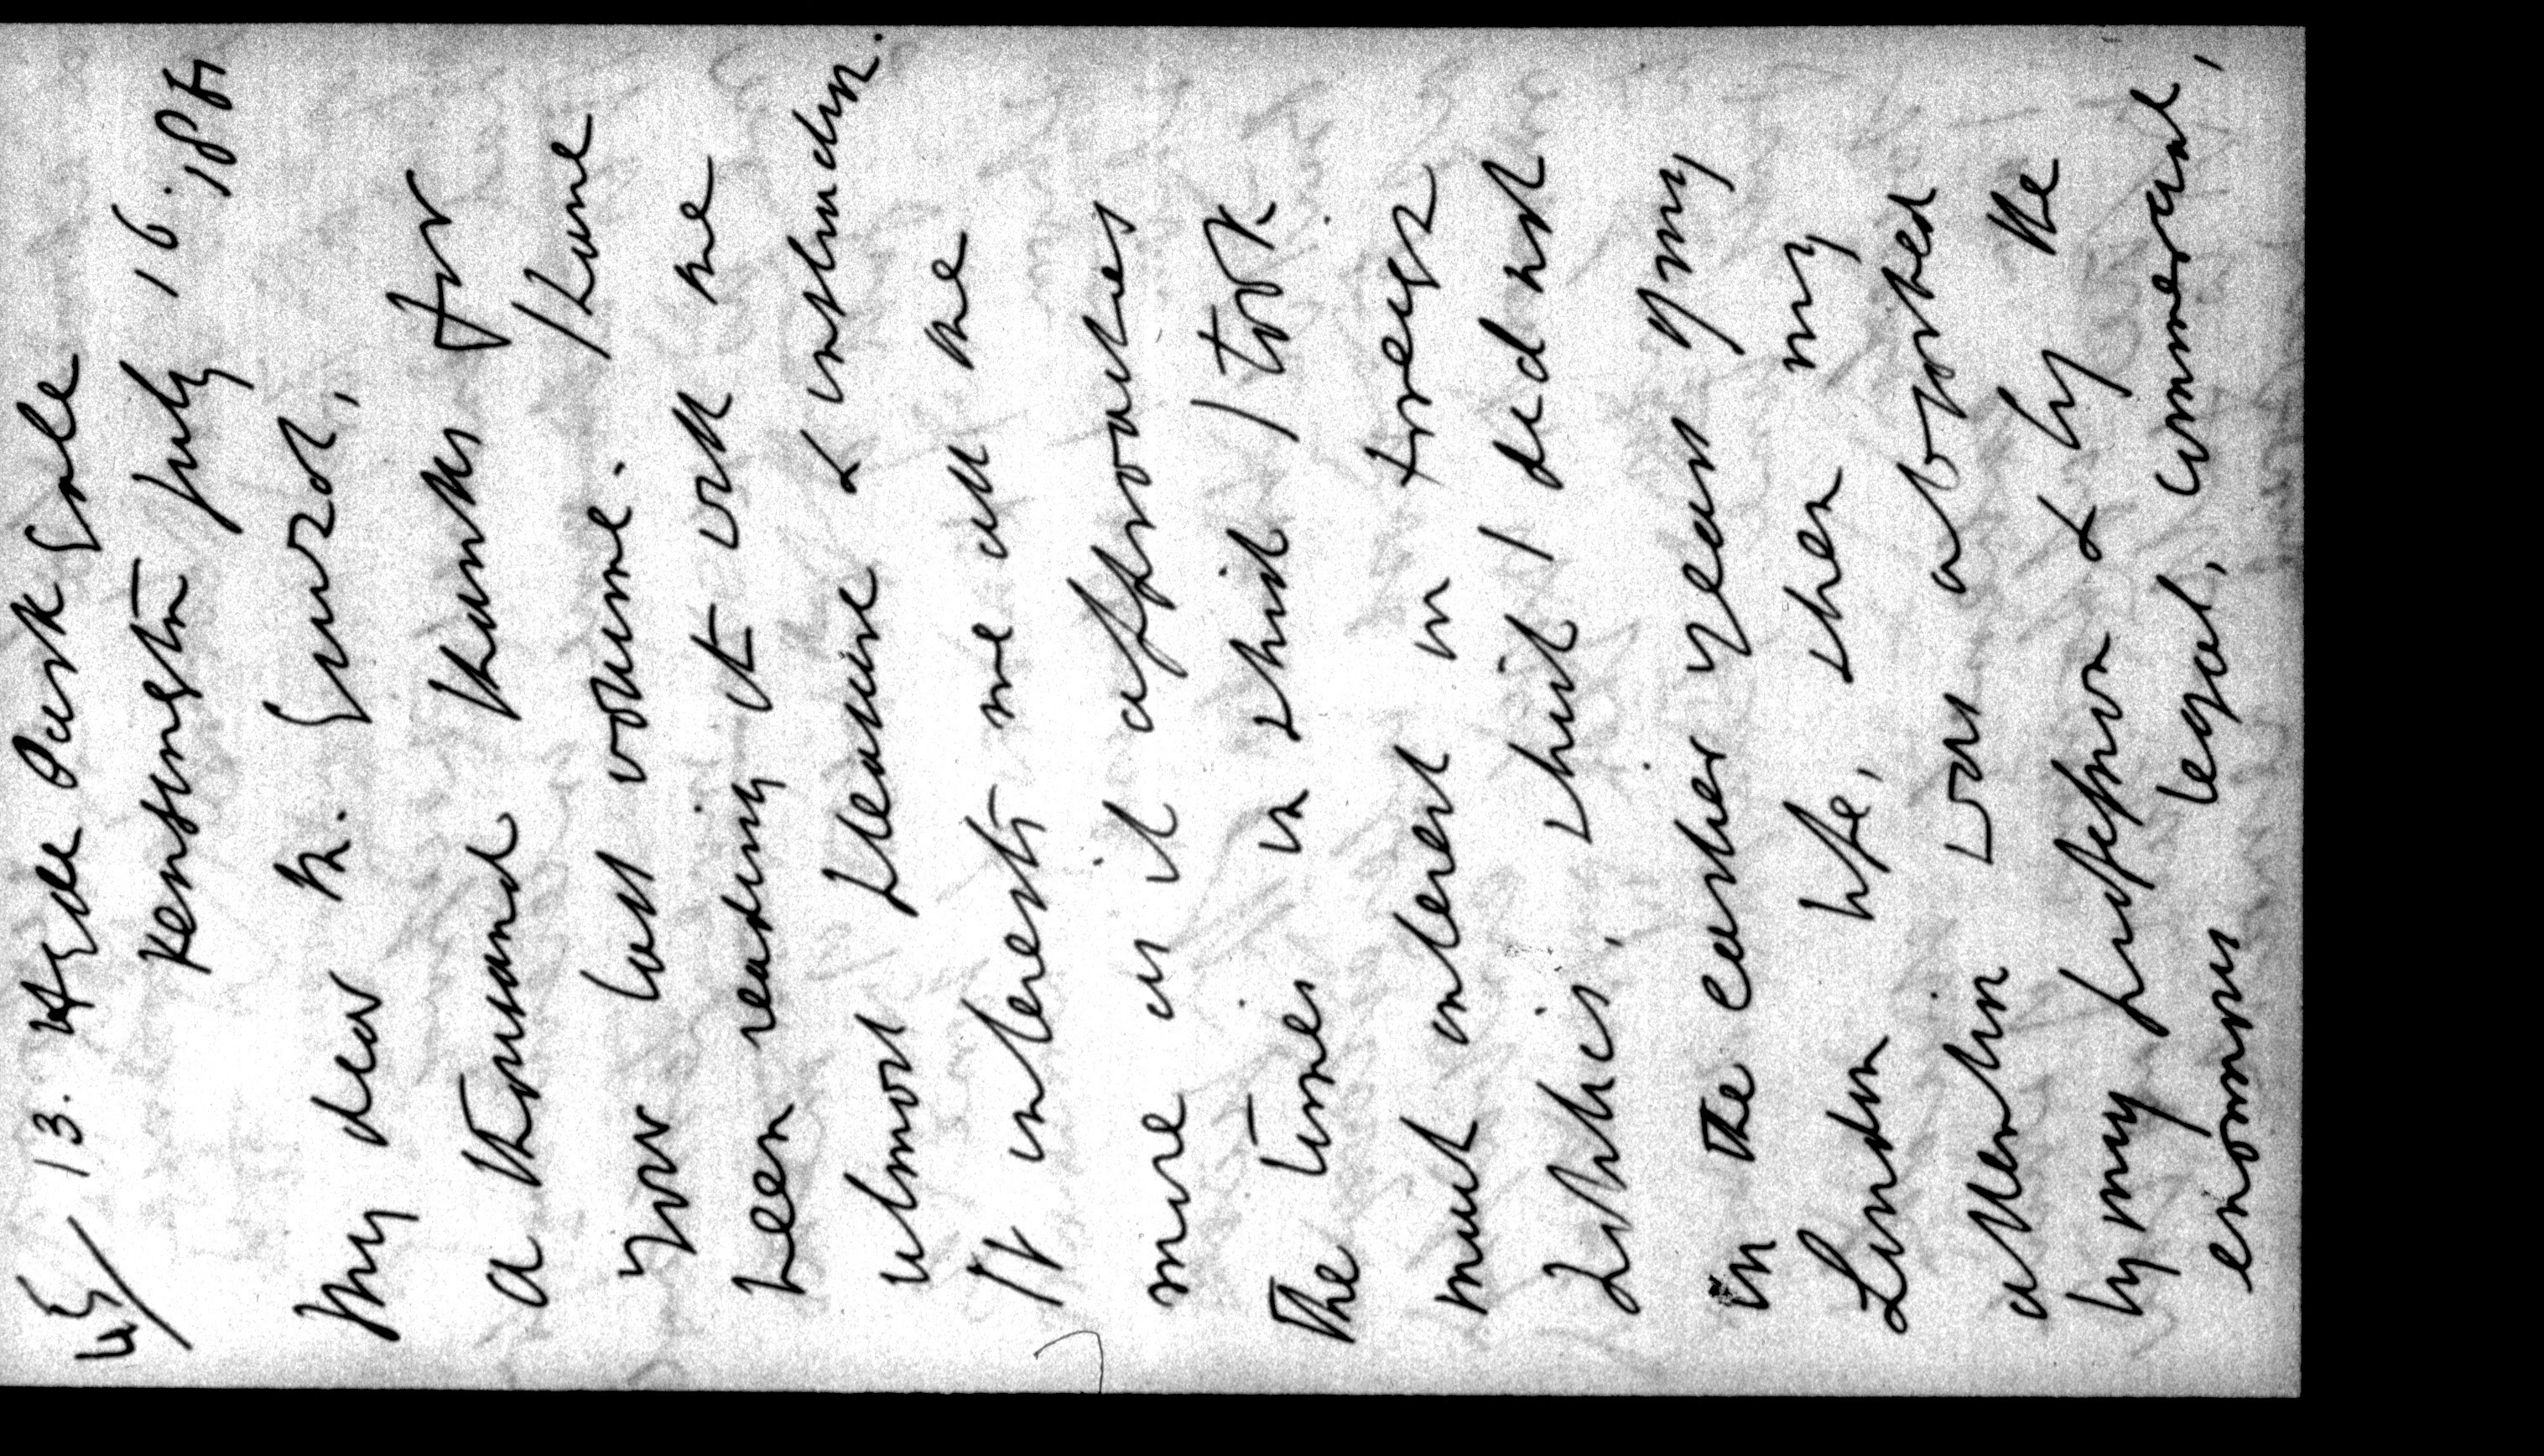 13. Hyde Park Gate
Kensington July 16. 1884
My dear M. Guizot,
a thousand thanks for
your last volume. I have
been reading it with the
utmost pleasure & instruction.
It interests me all the
more as it approaches
the times in which I took
much interest in foreign
Politics, which I did not
in the earlier years of my
London life, when my
attention was absorbed
by my profession & by the
enormous legal, commercial,